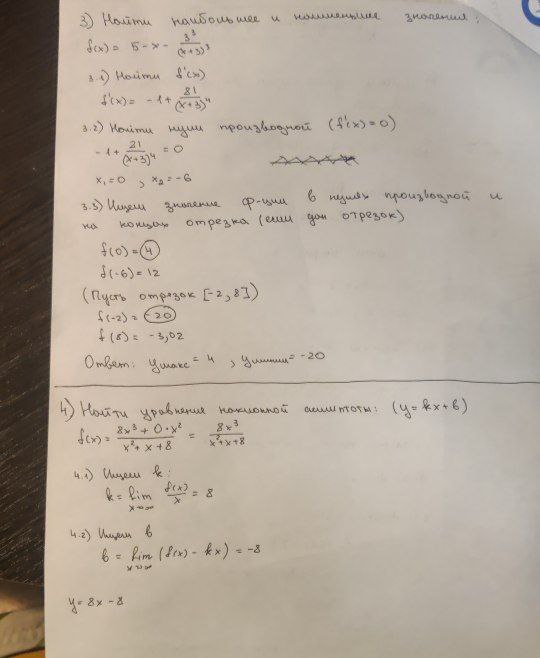 3) Найти наибольшее и наименьшее значения:
f(x) = 5 - x - 3³/(x+3)³
3.1) Найти f'(x)
f'(x) = -1 + 81/(x+3)⁴
3.2) Найти нули производной (f'(x)=0)
-1 + 21/(x+3)⁴ = 0
x₁=0 , x₂=-6
3.3) Ищем значение ф-ции в нулях производной и
на концах отрезка (если дан отрезок)
f(0) = 4
f(-6) = 12
(Пусть отрезок [-2, 8])
f(-2) = -20
f(8) = -3,02
Ответ: yмакс = 4 , yмин = -20
4) Найти уравнение наклонной асимптоты: (y = kx + b)
f(x) = (8x³ + 0·x²)/(x² + x + 8) = 8x³/(x²+x+8)
4.1) Ищем k:
k = lim x→∞ f(x)/x = 8
4.2) Ищем b
b = lim x→∞ (f(x) - kx) = -8
y = 8x - 8